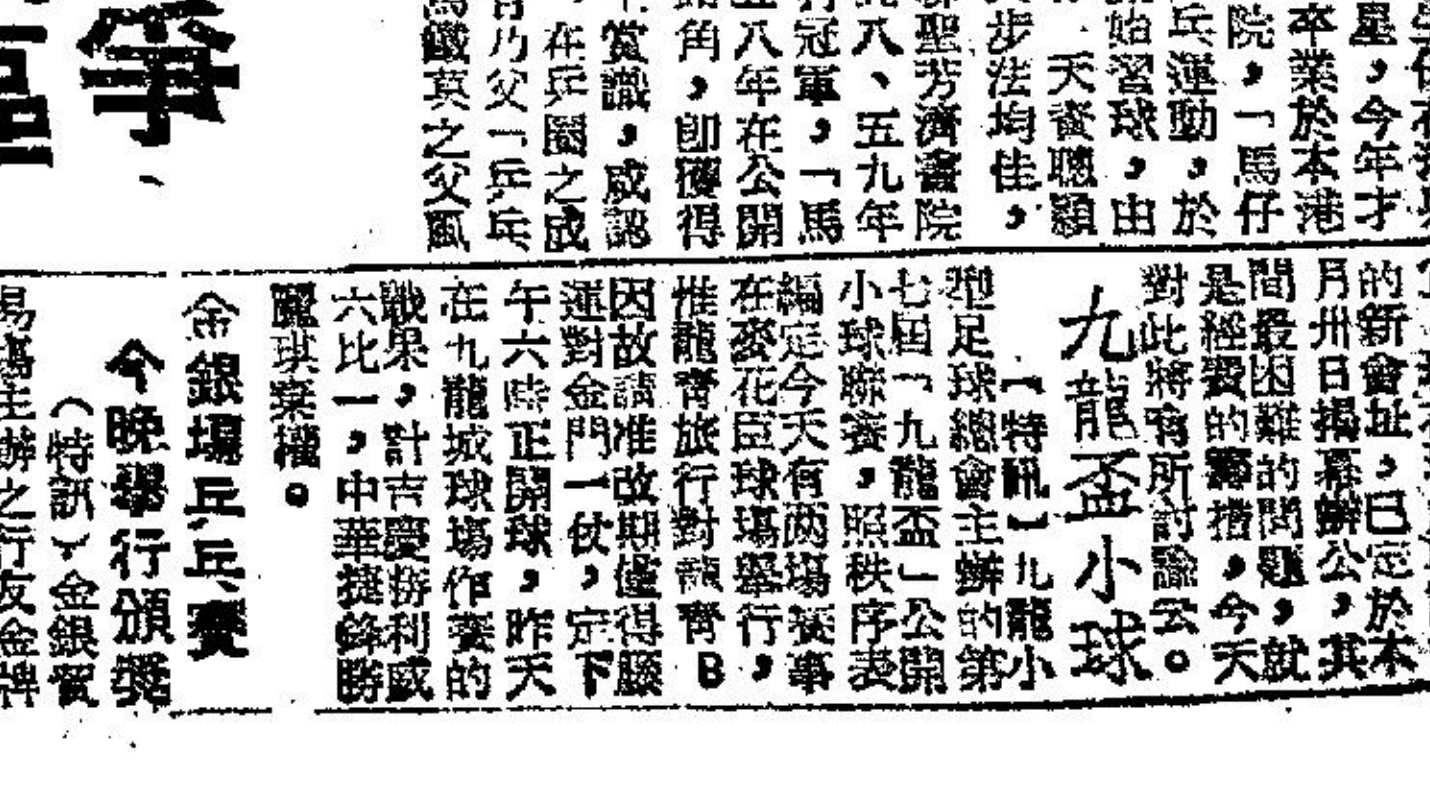 星，今年才
卒業於本港
院，「馬仔
乓運動，於
始習球，由
天資聰穎
步法均佳，
聖芳濟書院
八、五九年
冠軍，「馬
八年在公開
角，卽獲得
賞識，咸認
在乒圈之成
乃父「乒乓
之父風
爭、
的新會址，已定於本
月卅日揭幕辦公，其
間最困難的問題，就
是經費的籌措，今天
對此將有所討論云。
九龍盃小球
【特訊】九龍小
型足球總會主辦的第
七屆「九龍盃」公開
小球聯賽，照秩序表
編定今天有两場賽事
在麥花臣球場舉行，
惟龍青旅行對龍青B
因故請准改期僅得滕
運對金門一仗，定下
午六時正開球，昨天
在九龍城球場作賽的
戰果，計吉慶挫利威
六比一，中華捷鋒勝
麗琪棄權。
金銀塲乒乓賽
今晚舉行頒獎
（特訊）金銀貿
易塲主辦之行友金牌